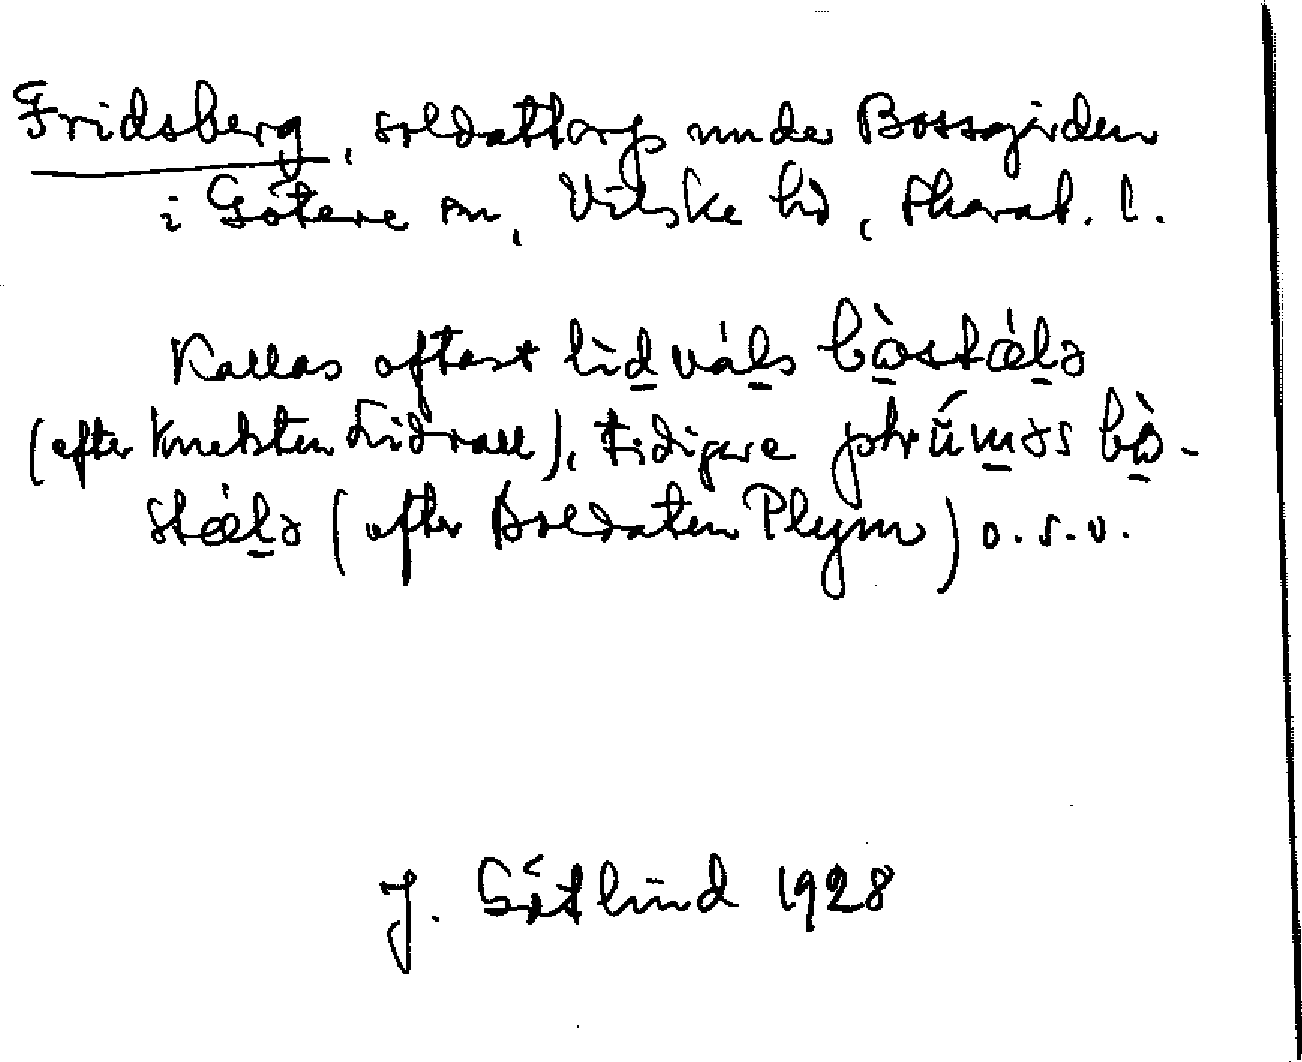 Fridsberg, soldattorp under Bossgården
i Götene sn, Vilske hd, Skarab. l.
Kallas oftast lìdváls bòstǽlə
(efter knekten Lidvall), tidigare plrúməs bò-
stǽlə (efter soldaten Plym) o.s.v.
J. Götlind 1928